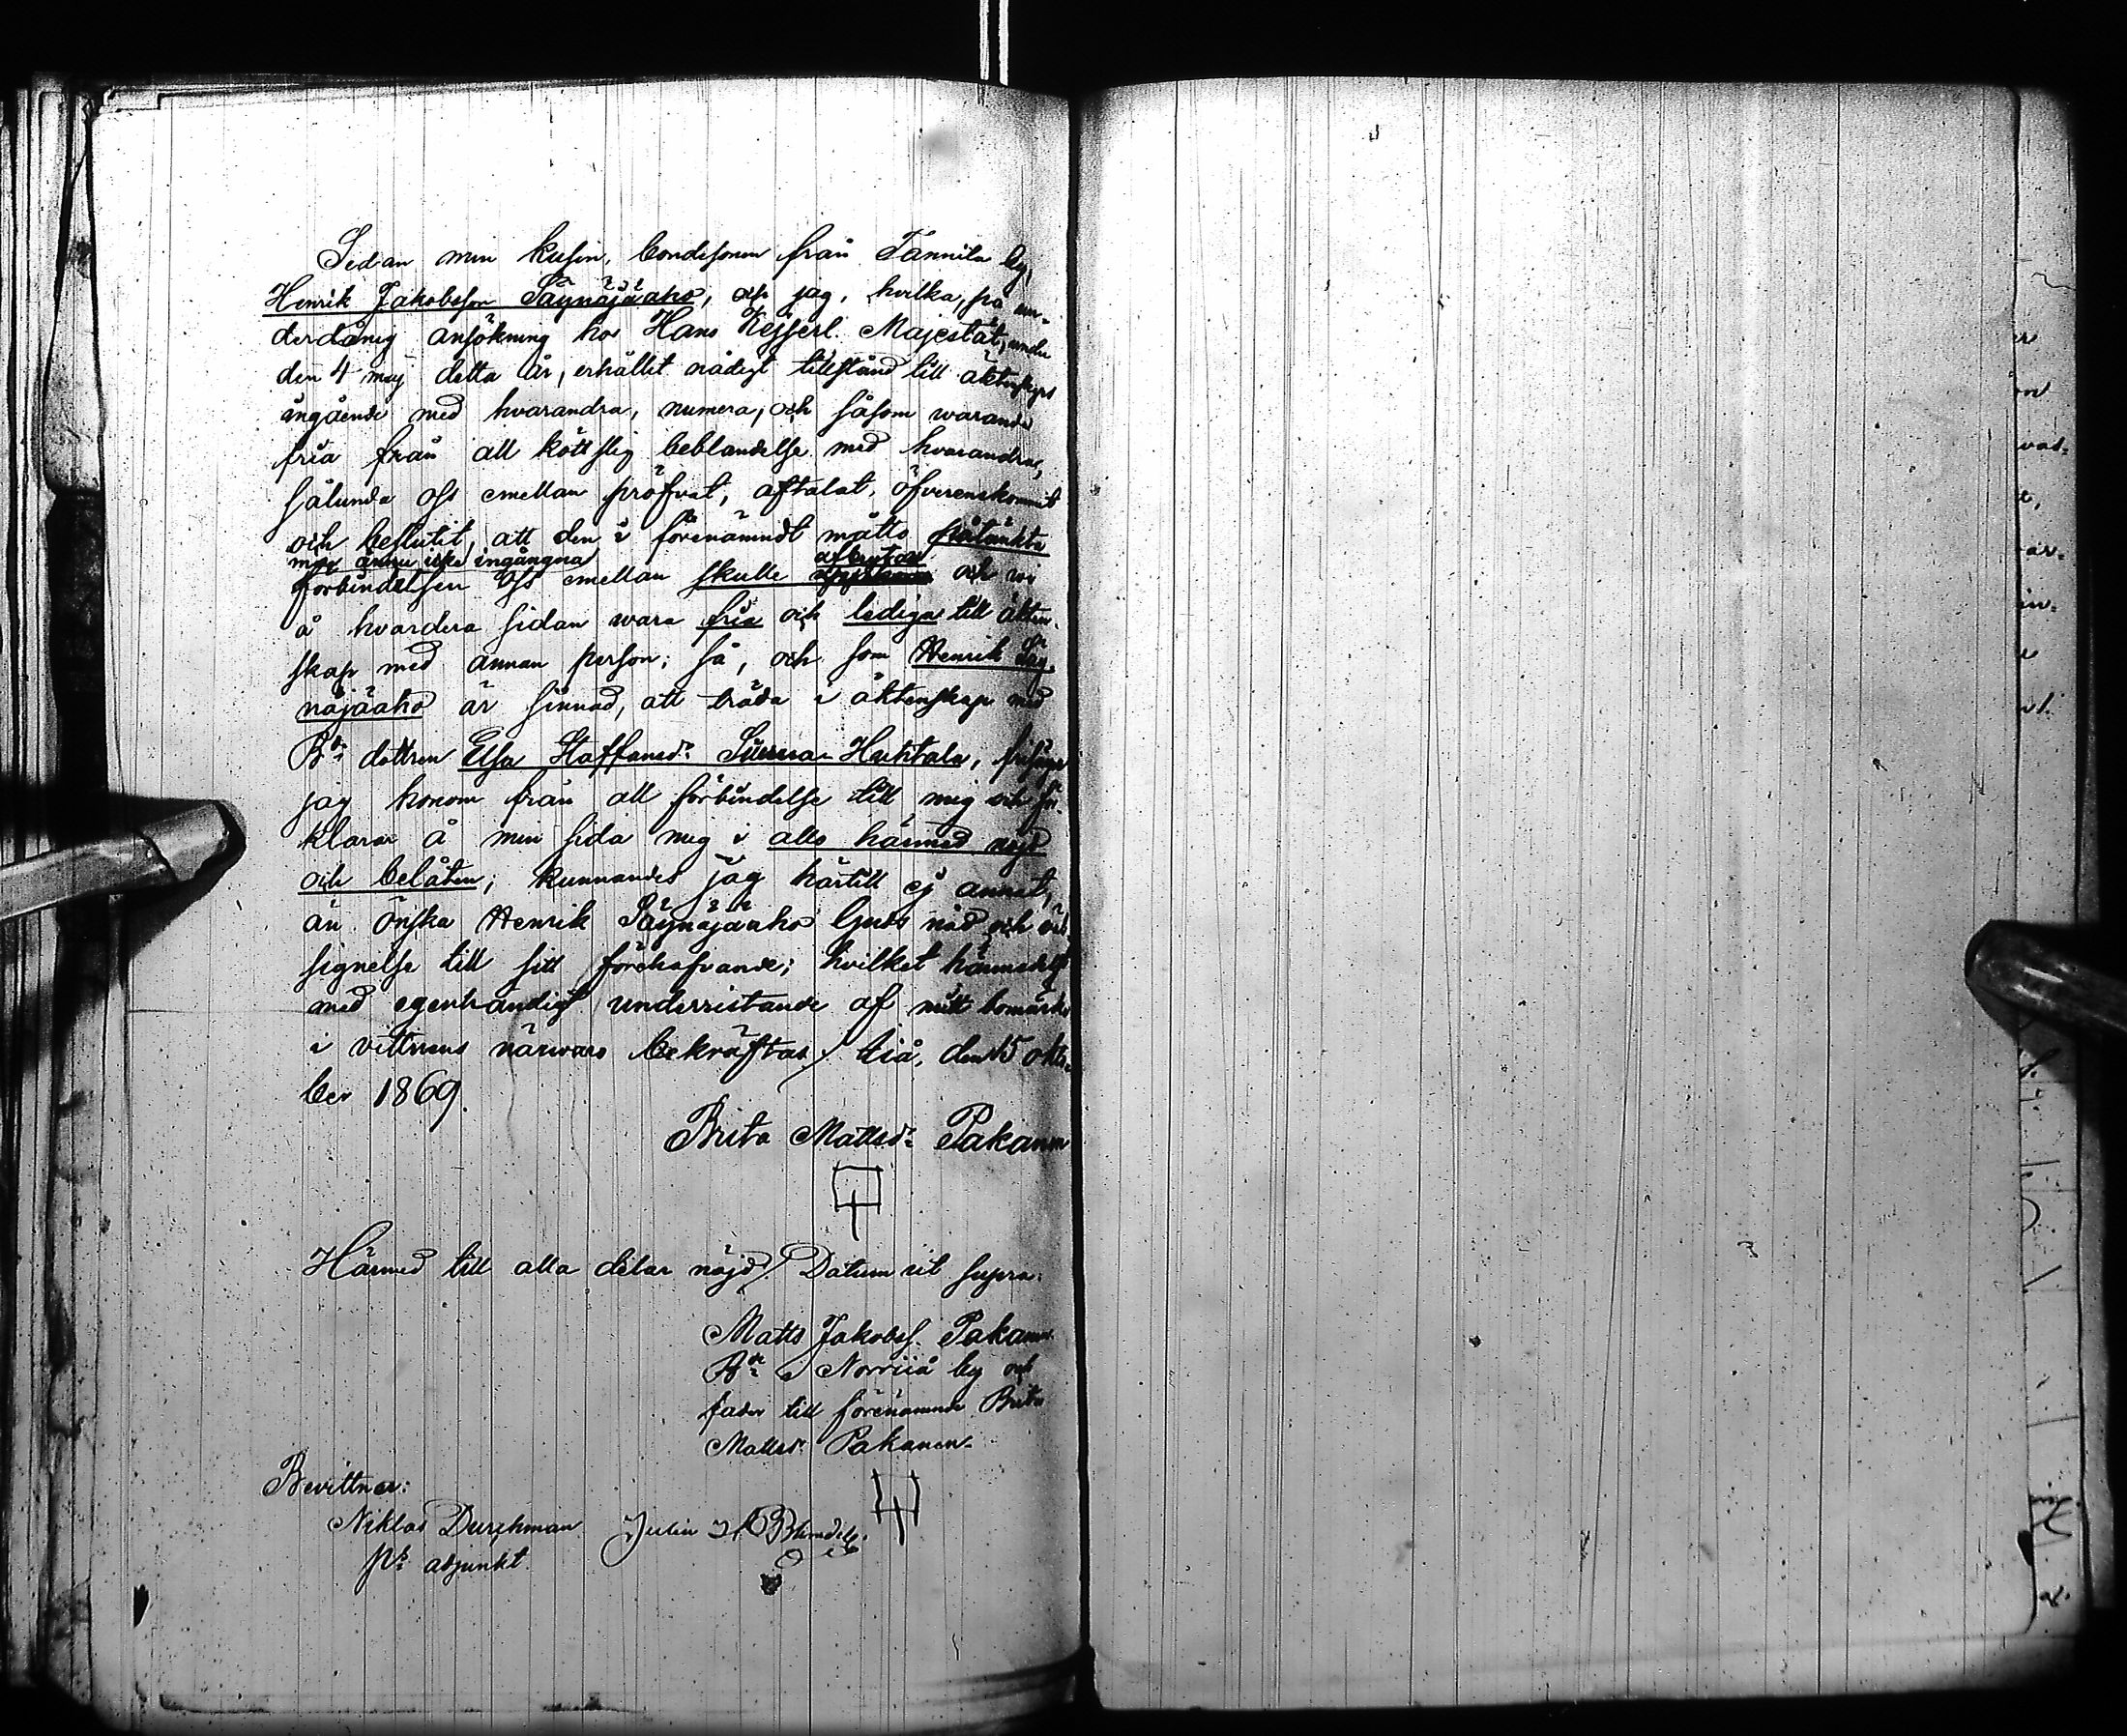 Sedan min kusin, bondesonen från Tannila by,
Henrik Jakobsson Säynäjäaho, och jag, hvilka, på un-
derdånig ansökning hos Hans Kejserl. Majestät, under
den 4 maj detta år, erhållit nådigt tillstånd till äktenskaps
ingående med hvarandra, numera, och såsom warande
fria från all köttslig beblandelse med hvarandra,
sålunda oss emellan pröfvat, aftalat, öfverenskommit
och beslutit, att den i förenämndt måtto påtänkta
men ännu icke ingångna afbrytas
förbindelsen oss emellan skulle och wi
å hvardera sidan wara fria och lediga till äkten-
skap med annan person; så, och som Henrik Säy-
näjäaho är sinnad, att träda i äktenskap med
Bde dottren Elsa Staffansdr Huhtala, frisäger
jag honom från all förbindelse till mig och för-
klarar å min sida mig i allo härmed nöjd
och belåten; kunnandes jag härtill ej annat,
än önska Henrik Säynäjäaho Guds nåd och väl-
signelse till sitt förehafvande; hvilket härmedelst
med egenhändigt underritande af mitt bomärke
i vittnens närwaro bekräftas. Iiå, den 15 okto-
ber 1869.
Brita Mattsdr Pakanen
Härmed till alla delar nöjd. Datum ut supra.
Matts Jakobss. Pakanen
Bde i Norriiå by och
fader till förenämnde Brita
Mattsdr Pakanen.
Bevittnar:
Niklas Durchman
ps adjunkt.